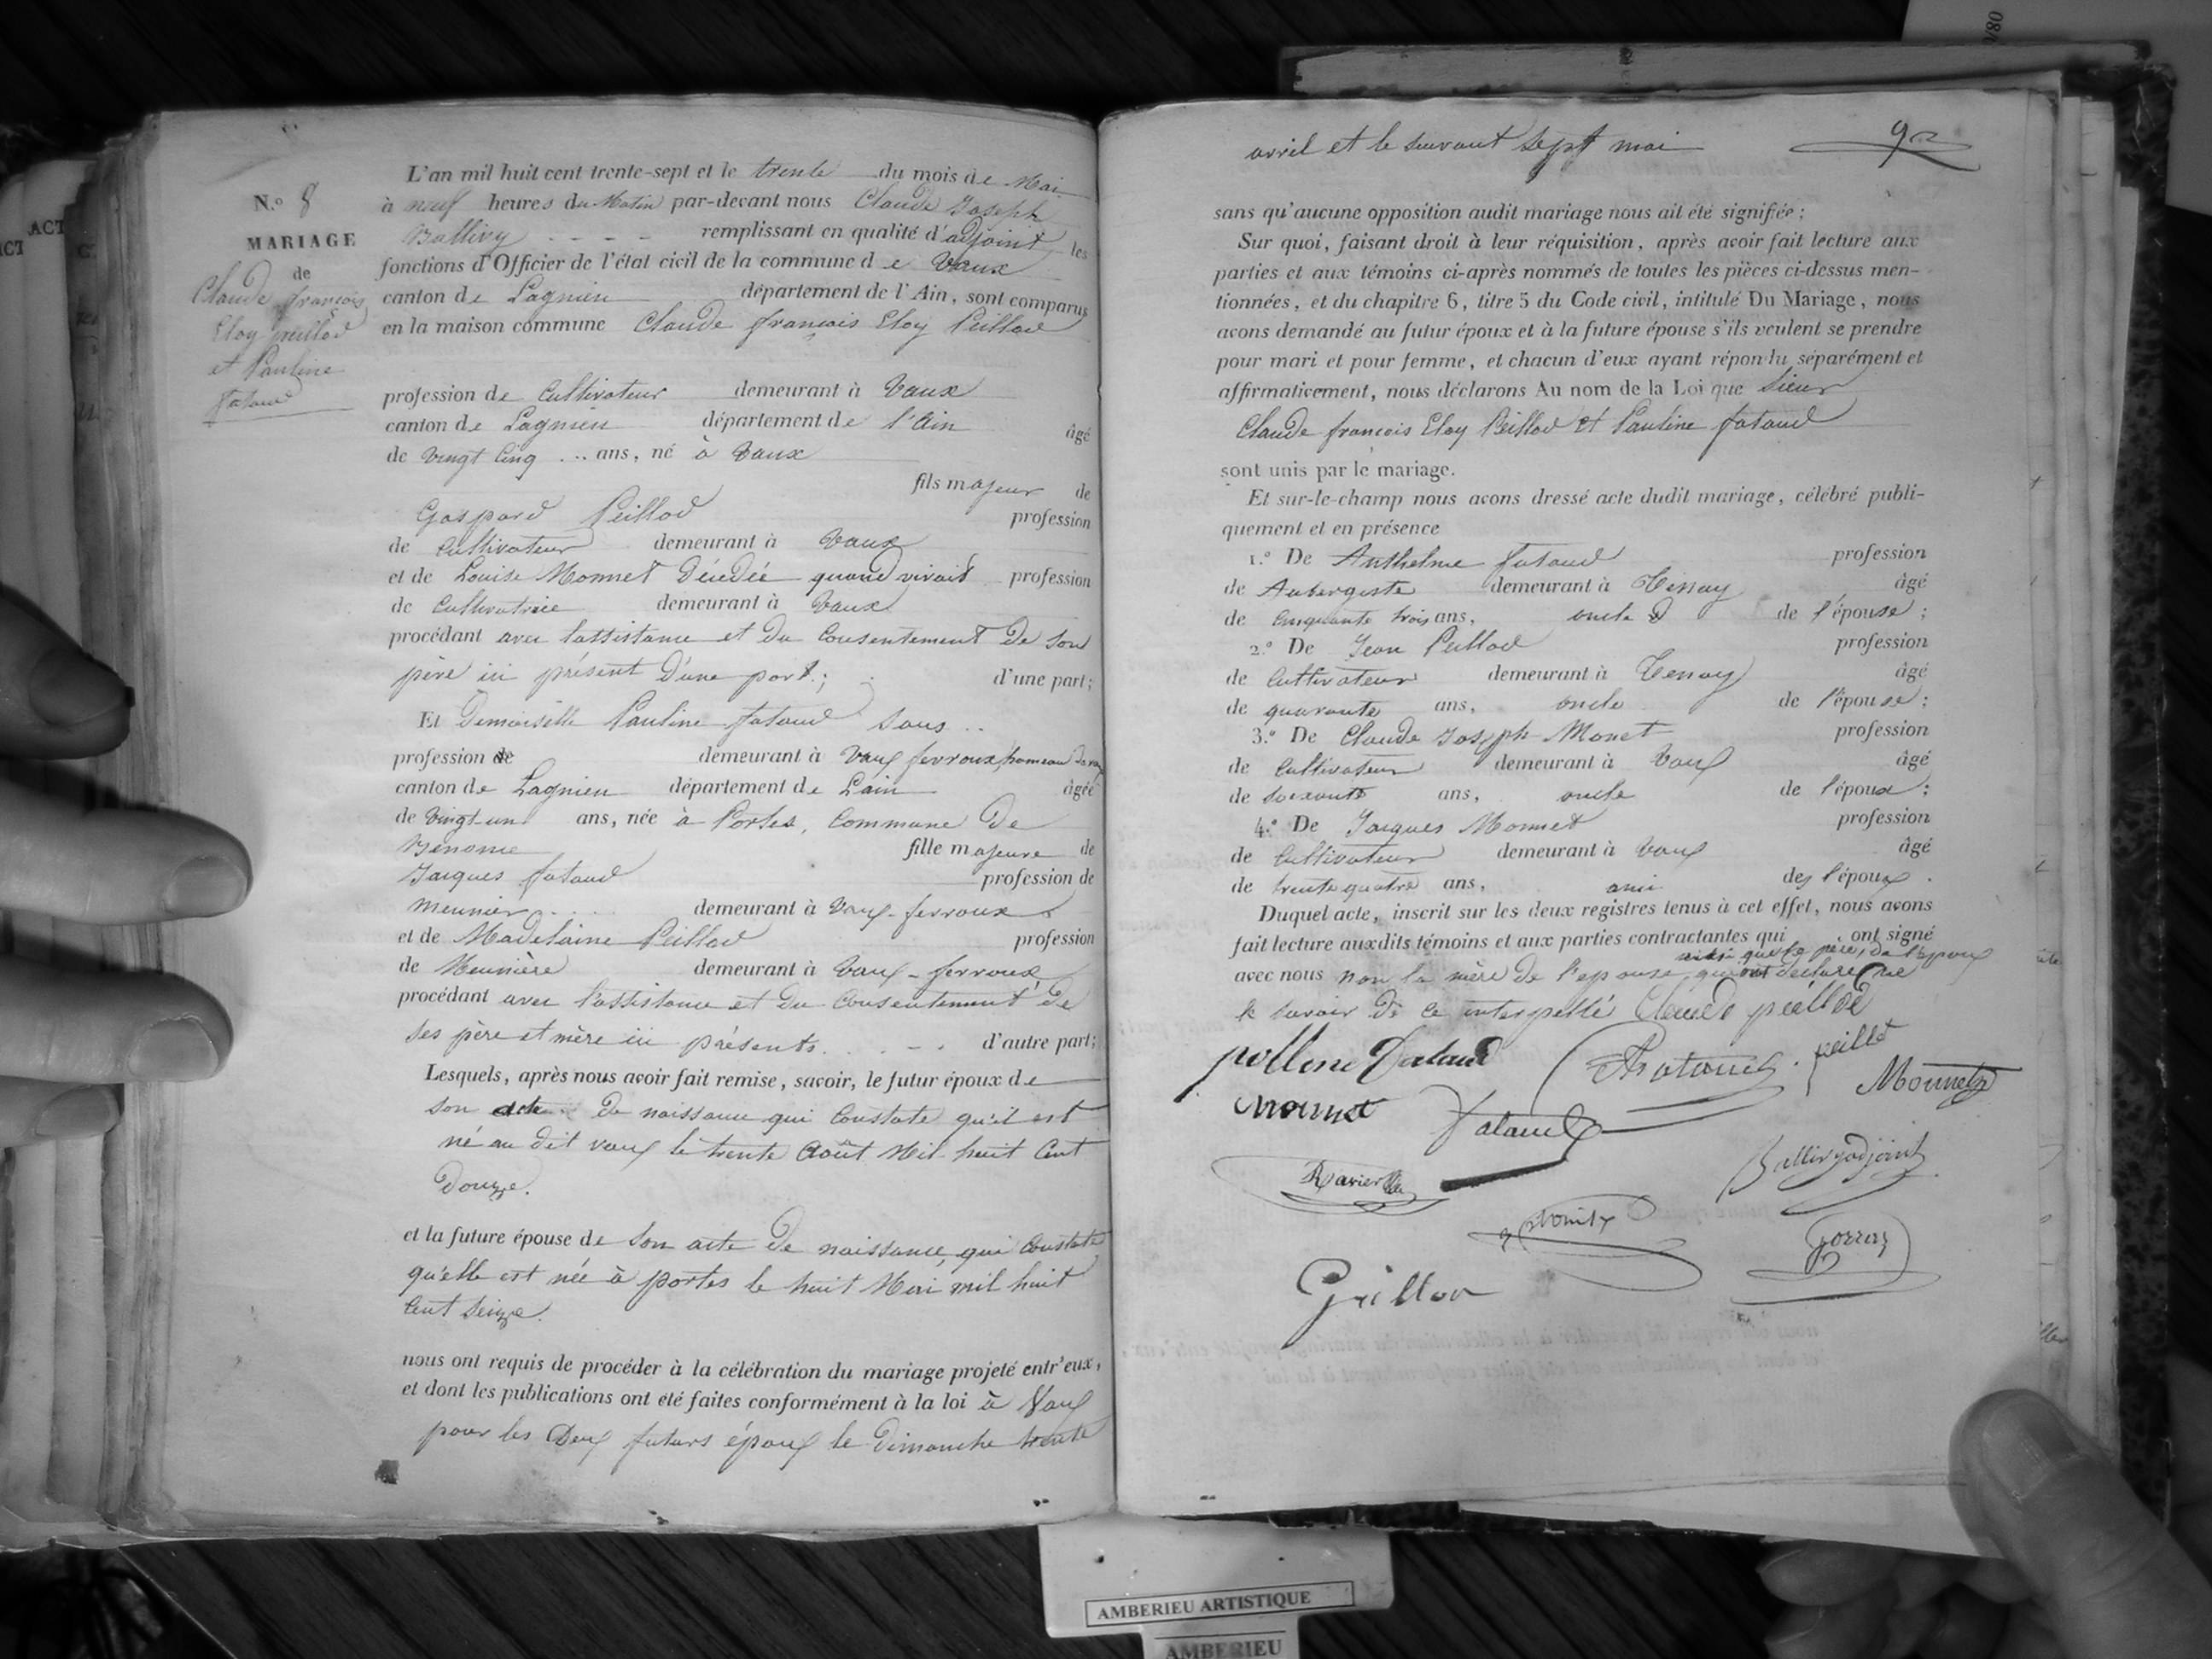 N.º 8
MARIAGE
de
Claude françois
Eloy peillod
et Pauline
fataud
L'an mil huit cent trente-sept et le trente du mois de Mai
à neuf heures du Matin par-devant nous Claude Joseph
Ballivy remplissant en qualité d'adjoint les
fonctions d'Officier de l'état civil de la commune de Vaux
canton de Lagnieu département de l'Ain, sont comparus
en la maison commune Claude françois Eloy Peillod
profession de Cultivateur demeurant à Vaux
canton de Lagnieu département de l'Ain âgé
de vingt Cinq ... ans, né à Vaux
fils majeur de
Gaspard Peillod profession
de Cultivateur demeurant à Vaux
et de Louise Monnet Décédée quand vivait profession
de Cultivatrice demeurant à Vaux
procédant avec l'assistance et du Consentement de son
père ici présent D'une part; d'une part;
Et Demoiselle Pauline fataud sans ..
profession de demeurant à Vaux ferroux, hameau de vaux
canton de Lagnieu département de L'ain âgée
de vingt-un ans, née à Portes, Commune De
Benonce fille majeure de
Jacques fataud profession de
meunier demeurant à Vaux-ferroux
et de Madelaine Peillod profession
de Meunière demeurant à Vaux-ferroux
procédant avec l'assistance et du Consentement de
ses père et mère ici présents. d'autre part;
Lesquels, après nous avoir fait remise, savoir, le futur époux de
son acte De naissance qui Constate qu'il est
né au dit vaux le trente Août Mil huit Cent
Douze.
et la future épouse de son acte De naissance, qui Constate
qu'elle est née à portes le huit Mai mil huit
Cent seize.
nous ont requis de procéder à la célébration du mariage projeté entr'eux,
et dont les publications ont été faites conformément à la loi à Vaux
pour les Deux futurs époux le Dimanche trente
avril et le suivant sept mai
sans qu'aucune opposition audit mariage nous ait été signifiée;
Sur quoi, faisant droit à leur réquisition, après avoir fait lecture aux
parties et aux témoins ci-après nommés de toutes les pièces ci-dessus men-
tionnées, et du chapitre 6, titre 5 du Code civil, intitulé Du Mariage, nous
avons demandé au futur époux et à la future épouse s'ils veulent se prendre
pour mari et pour femme, et chacun d'eux ayant répondu séparément et
affirmativement, nous déclarons Au nom de la Loi que Sieur
Claude francois Eloy Peillod et Pauline fataud
sont unis par le mariage.
Et sur-le-champ nous avons dressé acte dudit mariage, célébré publi-
quement et en présence
1.º De Anthelme fataud profession
de Aubergiste demeurant à Tenay âgé
de Cinquante trois ans, oncle de l'épouse;
2.º De Jean Peillod profession
de Cultivateur demeurant à Tenay âgé
de quarante ans, oncle de l'épouse;
3.º De Claude Joseph Monet profession
de Cultivateur demeurant à Vaux âgé
de soixante ans, oncle de l'époux;
4.º De Jacques Monnet profession
de Cultivateur demeurant à Vaux âgé
de trente quatre ans, ami des l'époux.
Duquel acte, inscrit sur les deux registres tenus à cet effet, nous avons
fait lecture auxdits témoins et aux parties contractantes qui ont signé
ainsi que le père, de l'époux
avec nous non la mère de l'epouse, qui ont declaré ne
le savoir De ce interpellé Claude peillod
pollene fataud fataud peillod
Monnet
monnet fataud
Ravier Ballivy adjoint
Gorraz
Grillon
AMBERIEU ARTISTIQUE
AMBERIEU